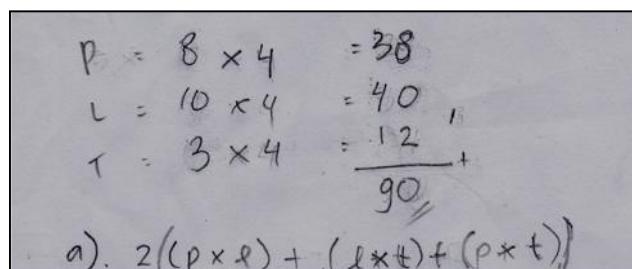 P = 8 × 4 = 38
L = 10 × 4 = 40
T = 3 × 4 = 12 +
90
a). 2((p × l) + (l × t) + (p × t))